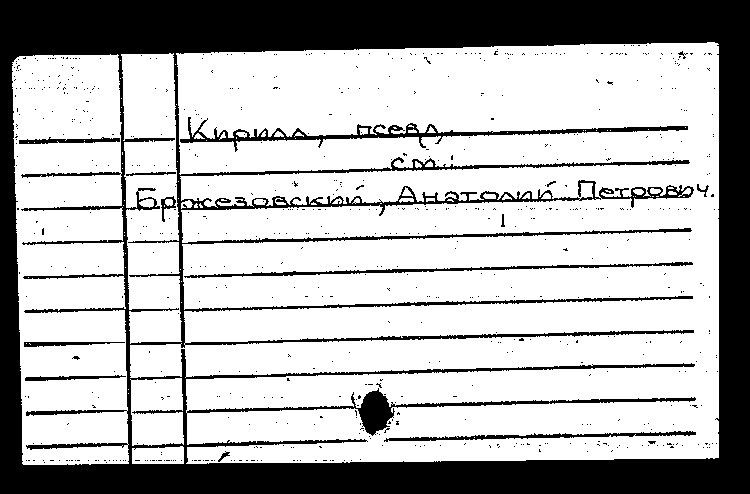 Кирилл, псевд.
см.:
Бржезовский, Анатолий Петрович.